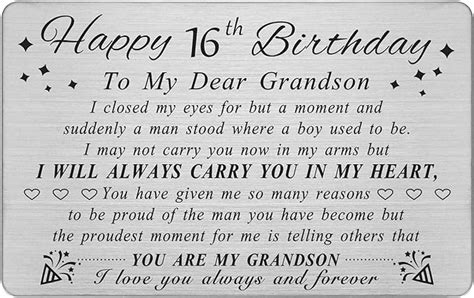 Happy 16th Birthday
To My Dear Grandson
I closed my eyes for but a moment and
suddenly a man stood where a boy used to be.
I may not carry you now in my arms but
I WILL ALWAYS CARRY YOU IN MY HEART,
You have given me so many reasons
to be proud of the man you have become but
the proudest moment for me is telling others that
YOU ARE MY GRANDSON
I love you always and forever